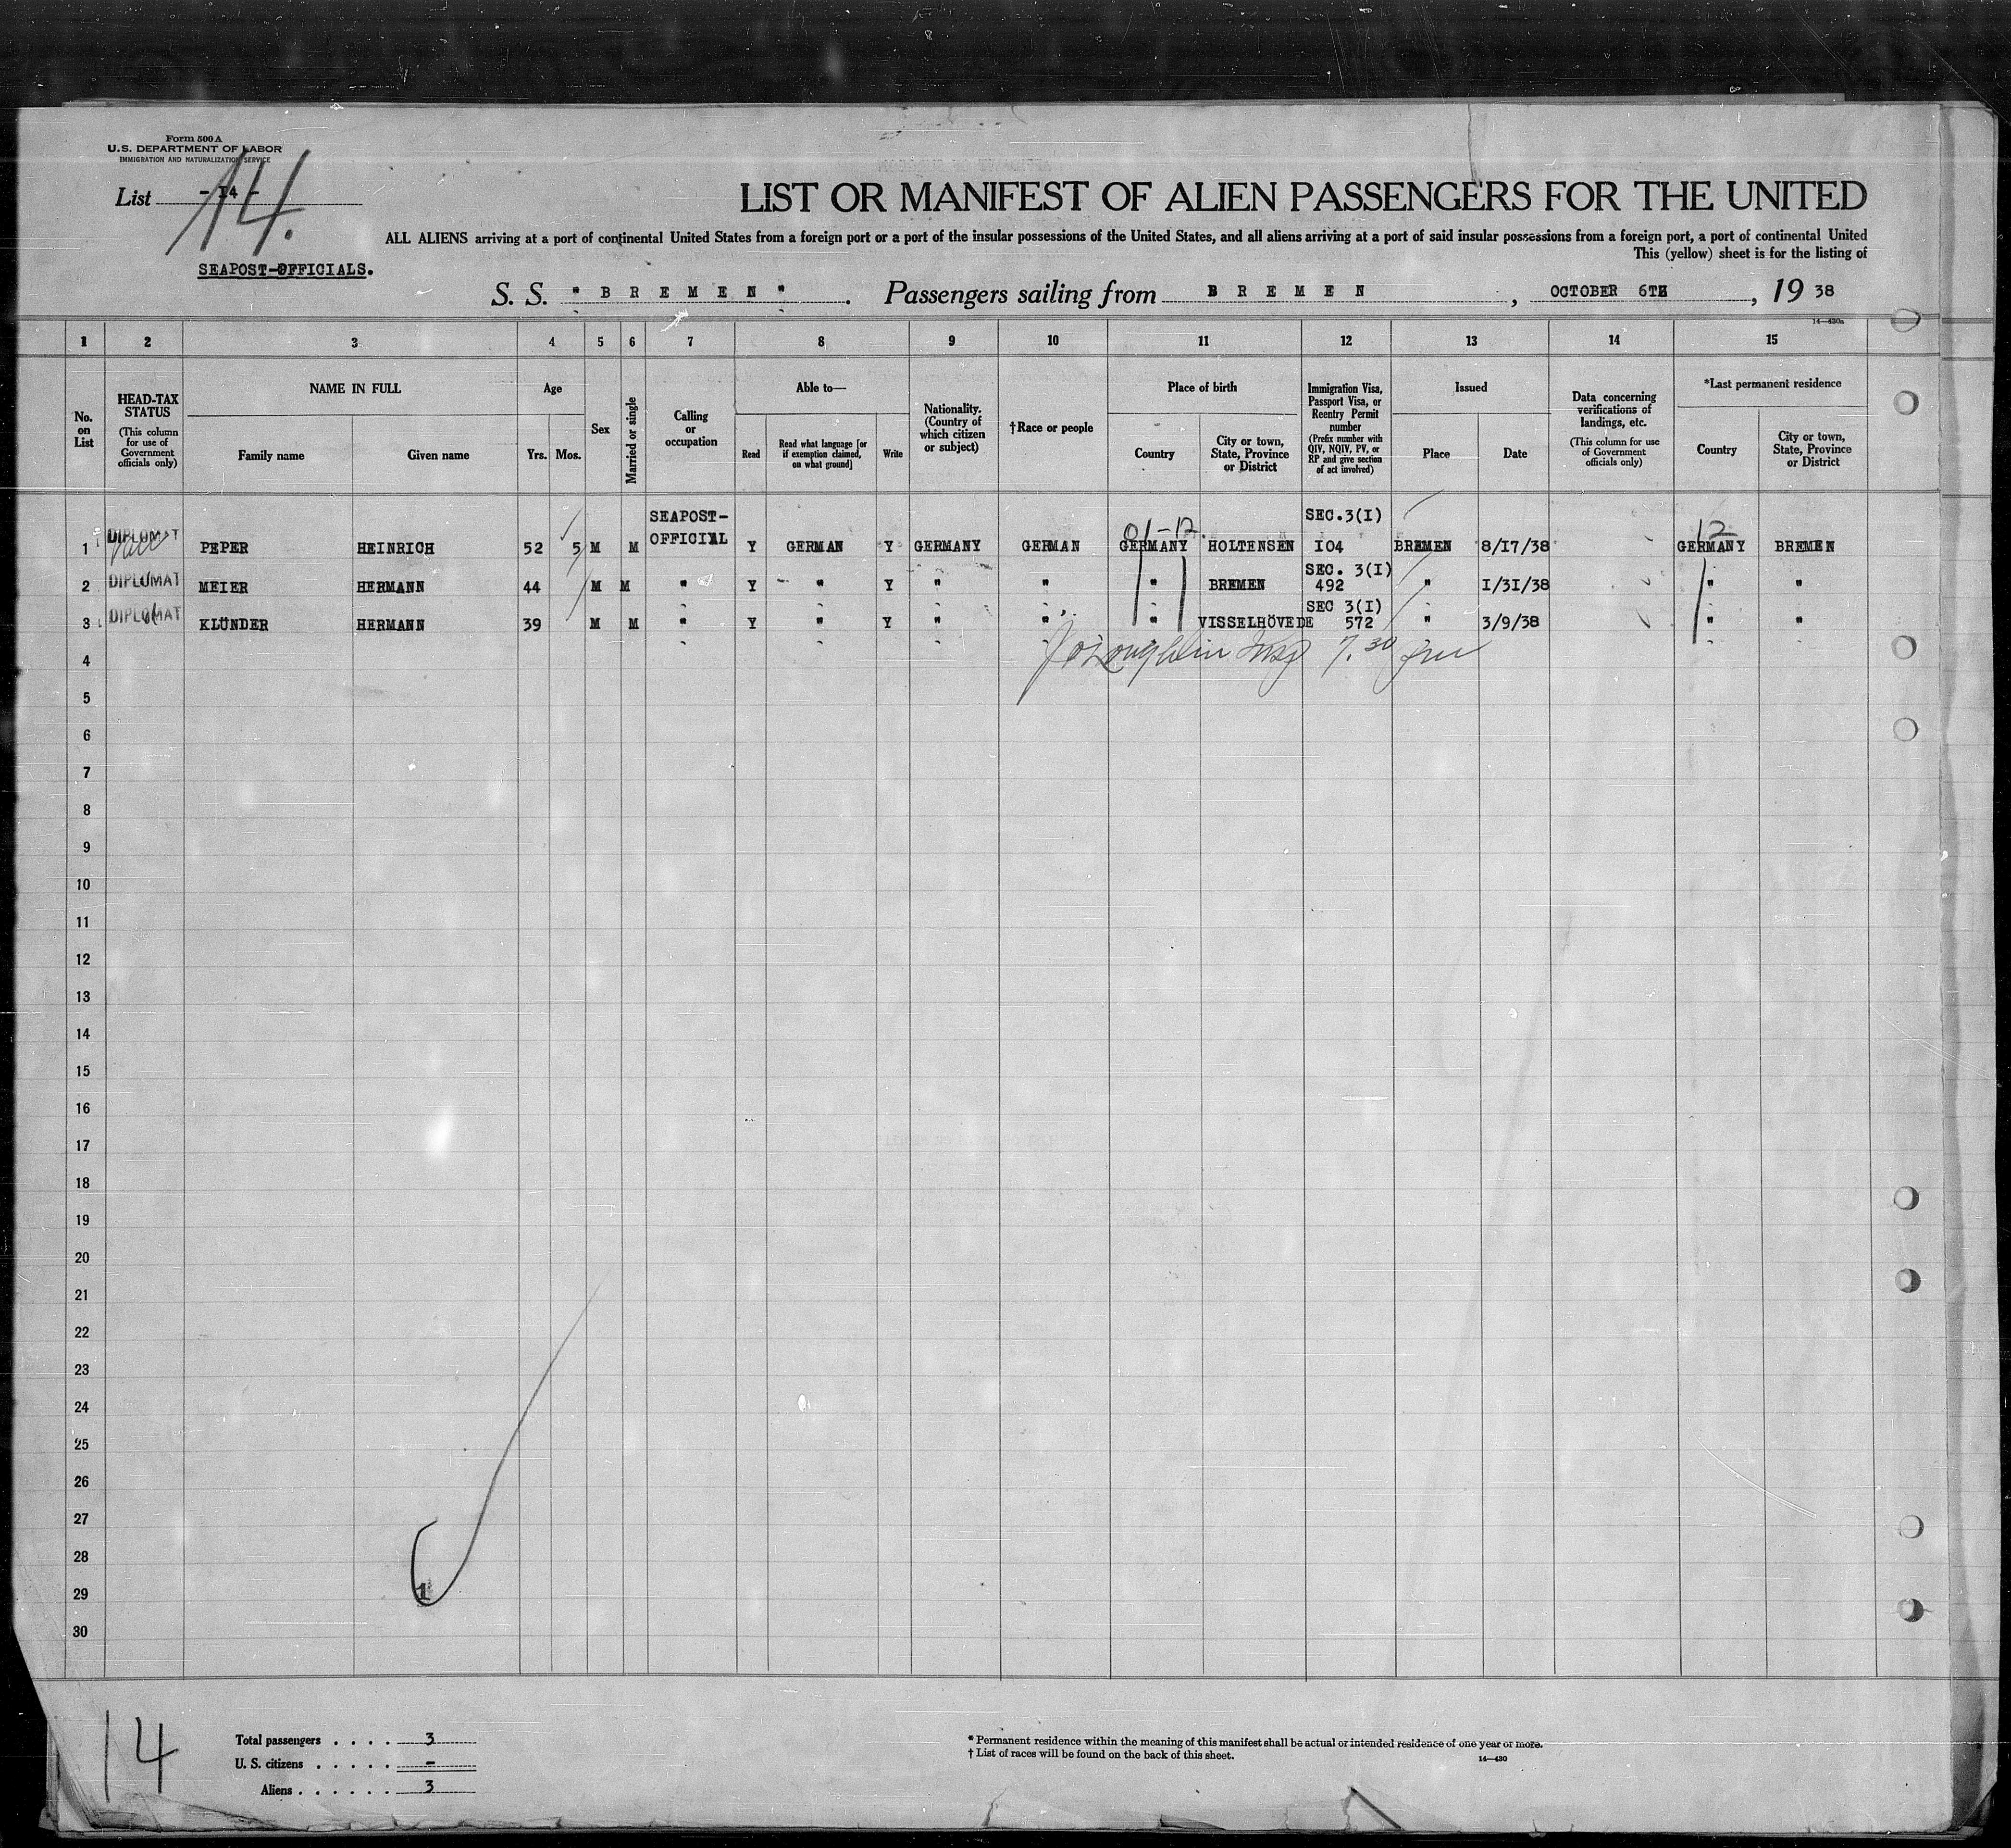 Form 500 A
U.S. DEPARTMENT OF LABOR
IMMIGRATION AND NATURALIZATION SERVICE
List - I4 -
14.
SEAPOST-OFFICIALS.
LIST OR MANIFEST OF ALIEN PASSENGERS FOR THE UNITED
ALL ALIENS arriving at a port of continental United States from a foreign port or a port of the insular possessions of the United States, and all aliens arriving at a port of said insular possessions from a foreign port, a port of continental United
This (yellow) sheet is for the listing of
S. S. "BREMEN". Passengers sailing from BREMEN, OCTOBER 6TH, 19 38
14—430a
1 2 3 4 5 6 7 8 9 10 11 12 13 14 15
No. on List
HEAD-TAX STATUS (This column for use of Government officials only)
NAME IN FULL
Family name Given name
Age
Yrs. Mos.
Sex
Married or single
Calling or occupation
Able to—
Read
Read what language [or if exemption claimed, on what ground]
Write
Nationality. (Country of which citizen or subject)
†Race or people
Place of birth
Country
City or town, State, Province or District
Immigration Visa, Passport Visa, or Reentry Permit number (Prefix number with QIV, NQIV, PV, or RP and give section of act involved)
Issued
Place Date
Data concerning verifications of landings, etc. (This column for use of Government officials only)
*Last permanent residence
Country
City or town, State, Province or District
SEAPOST- SEC.3(I)
01-12 12
1 DIPLOMAT PEPER HEINRICH 52 5 M M OFFICIAL Y GERMAN Y GERMANY GERMAN GERMANY HOLTENSEN I04 BREMEN 8/I7/38 GERMANY BREMEN
SEC. 3(I)
2 DIPLOMAT MEIER HERMANN 44 M M " Y " Y " " " BREMEN 492 " I/3I/38 " "
SEC 3(I)
3 DIPLOMAT KLÜNDER HERMANN 39 M M " Y " Y " " " VISSELHÖVEDE 572 " 3/9/38 " "
4
5
6
7
8
9
10
11
12
13
14
15
16
17
18
19
20
21
22
23
24
25
26
27
28
29
30
1
14
Total passengers . . . . 3
U. S. citizens . . . . . -
Aliens . . . . . . 3
* Permanent residence within the meaning of this manifest shall be actual or intended residence of one year or more.
† List of races will be found on the back of this sheet.
14—430